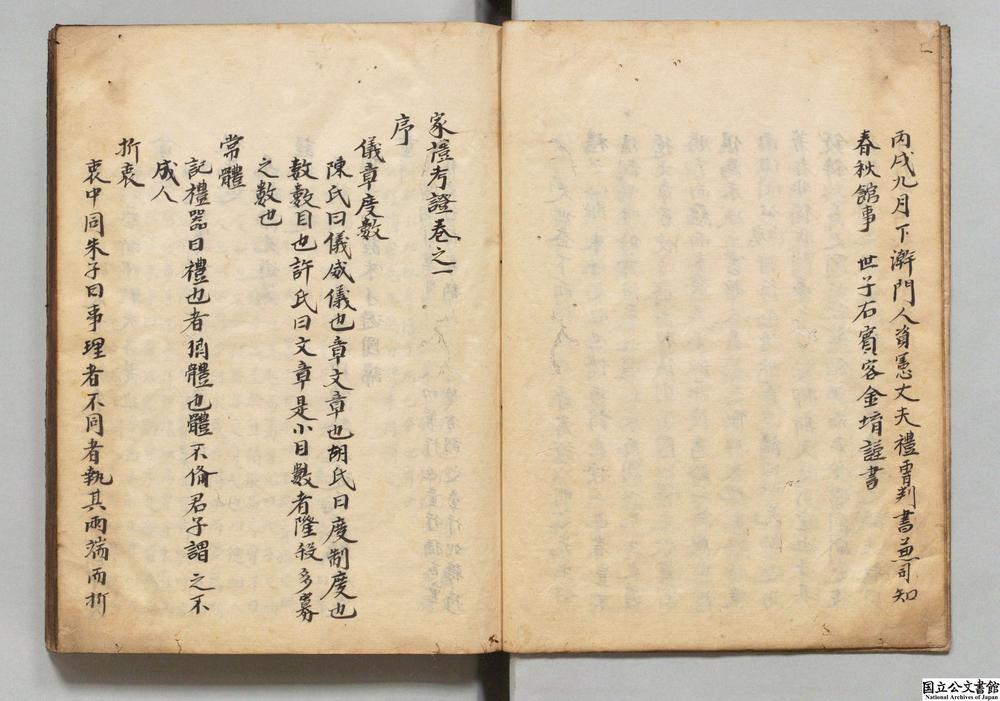 丙戌九月下澣門人資憲大夫禮曹判書兼司知
春秋館事 世子右賓客金堉謹書
家禮考證卷之一
序
儀章度數
陳氏曰儀威儀也章文章也胡氏曰度制度也
數數目也許氏曰文章是小目數者隆殺多寡
之數也
常體
記禮器曰禮也者猶體也體不俻君子謂之不
成人
折衷
衷中同朱子曰事理者不同者執其兩端而折
国立公文書館
National Archives of Japan